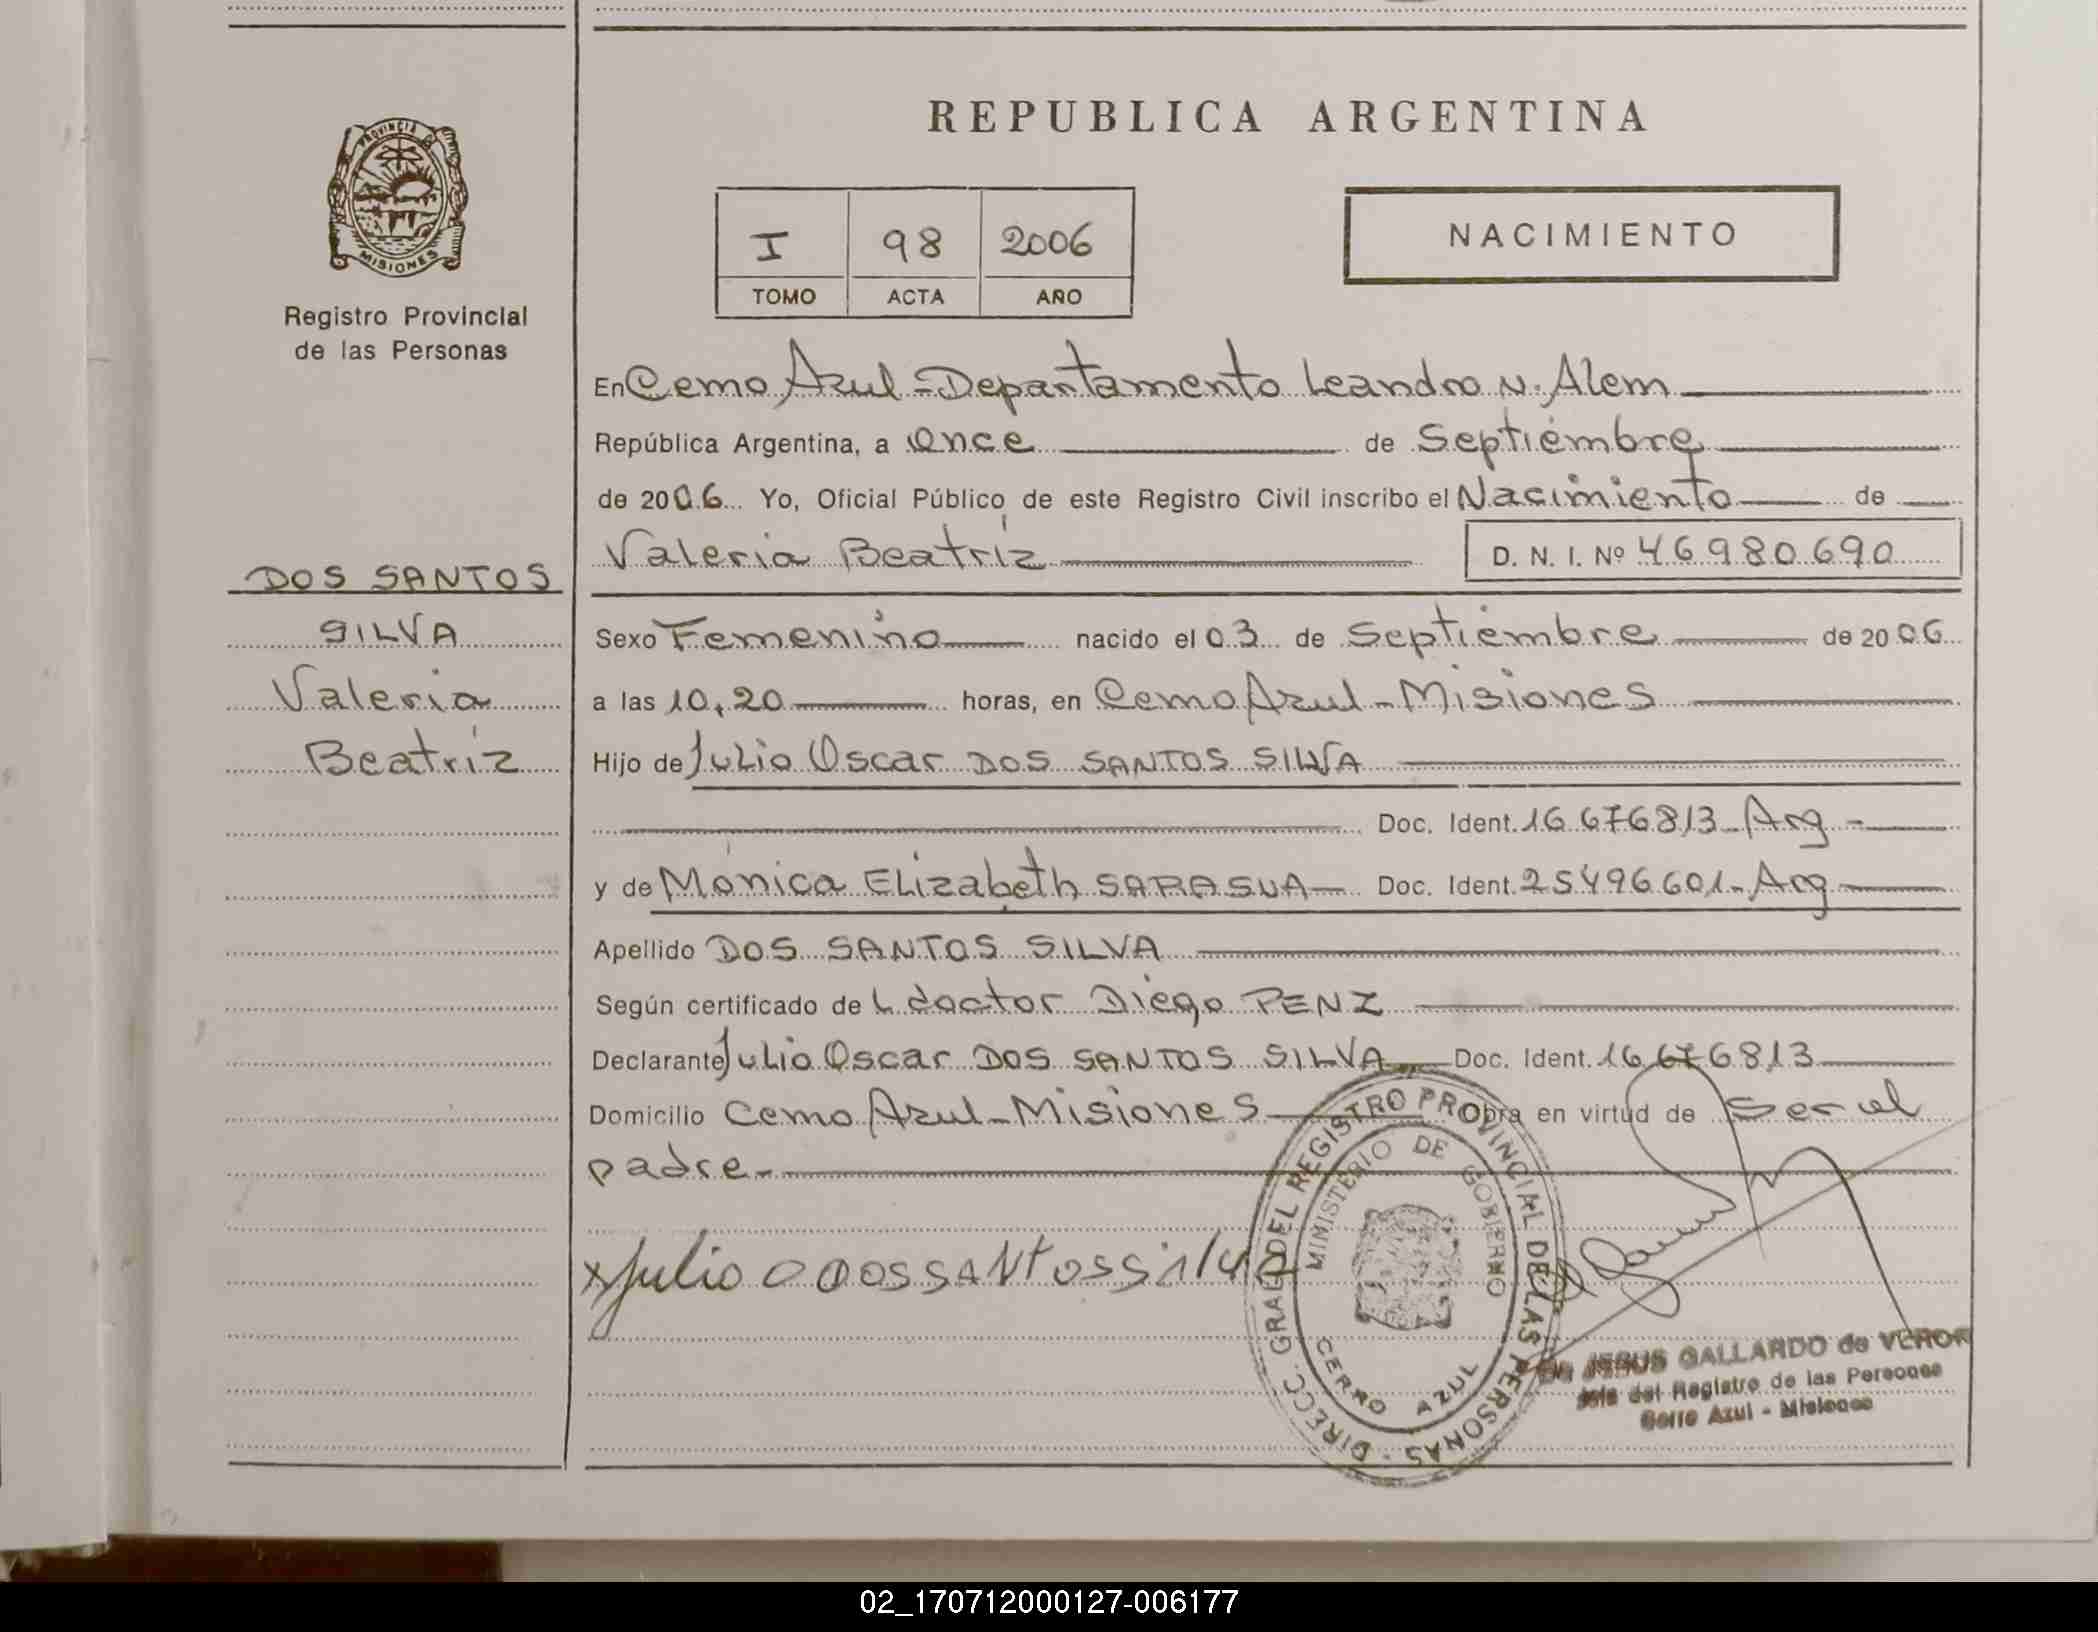 REPUBLICA ARGENTINA
PROVINCIA DE
MISIONES
Registro Provincial
de las Personas
I 98 2006
TOMO ACTA AÑO
NACIMIENTO
En Cerro Azul - Departamento Leandro N. Alem
República Argentina, a once de Septiembre
de 2006 Yo, Oficial Público de este Registro Civil inscribo el Nacimiento de
Valeria Beatríz D. N. I. Nº 46980690
DOS SANTOS
SILVA
Valeria
Beatríz
Sexo Femenino nacido el 03 de Septiembre de 2006
a las 10,20 horas, en Cerro Azul - Misiones
Hijo de Julio Oscar DOS SANTOS SILVA
Doc. Ident. 16676813 Arg -
y de Mónica Elizabeth SARASUA Doc. Ident. 25496601 - Arg
Apellido DOS SANTOS SILVA
Según certificado de L doctor Diego PENZ
Declarante Julio Oscar DOS SANTOS SILVA Doc. Ident. 16676813
Domicilio Cerro Azul - Misiones Obra en virtud de ser el
padre -
x Julio O DOSSANtosSilva
DIRECC. GRAL. DEL REGISTRO PROVINCIAL DE LAS PERSONAS -
MINISTERIO DE GOBIERNO
CERRO AZUL
JESUS GALLARDO de VERON
Jefe del Registro de las Personas
Cerro Azul - Misiones
02_170712000127-006177